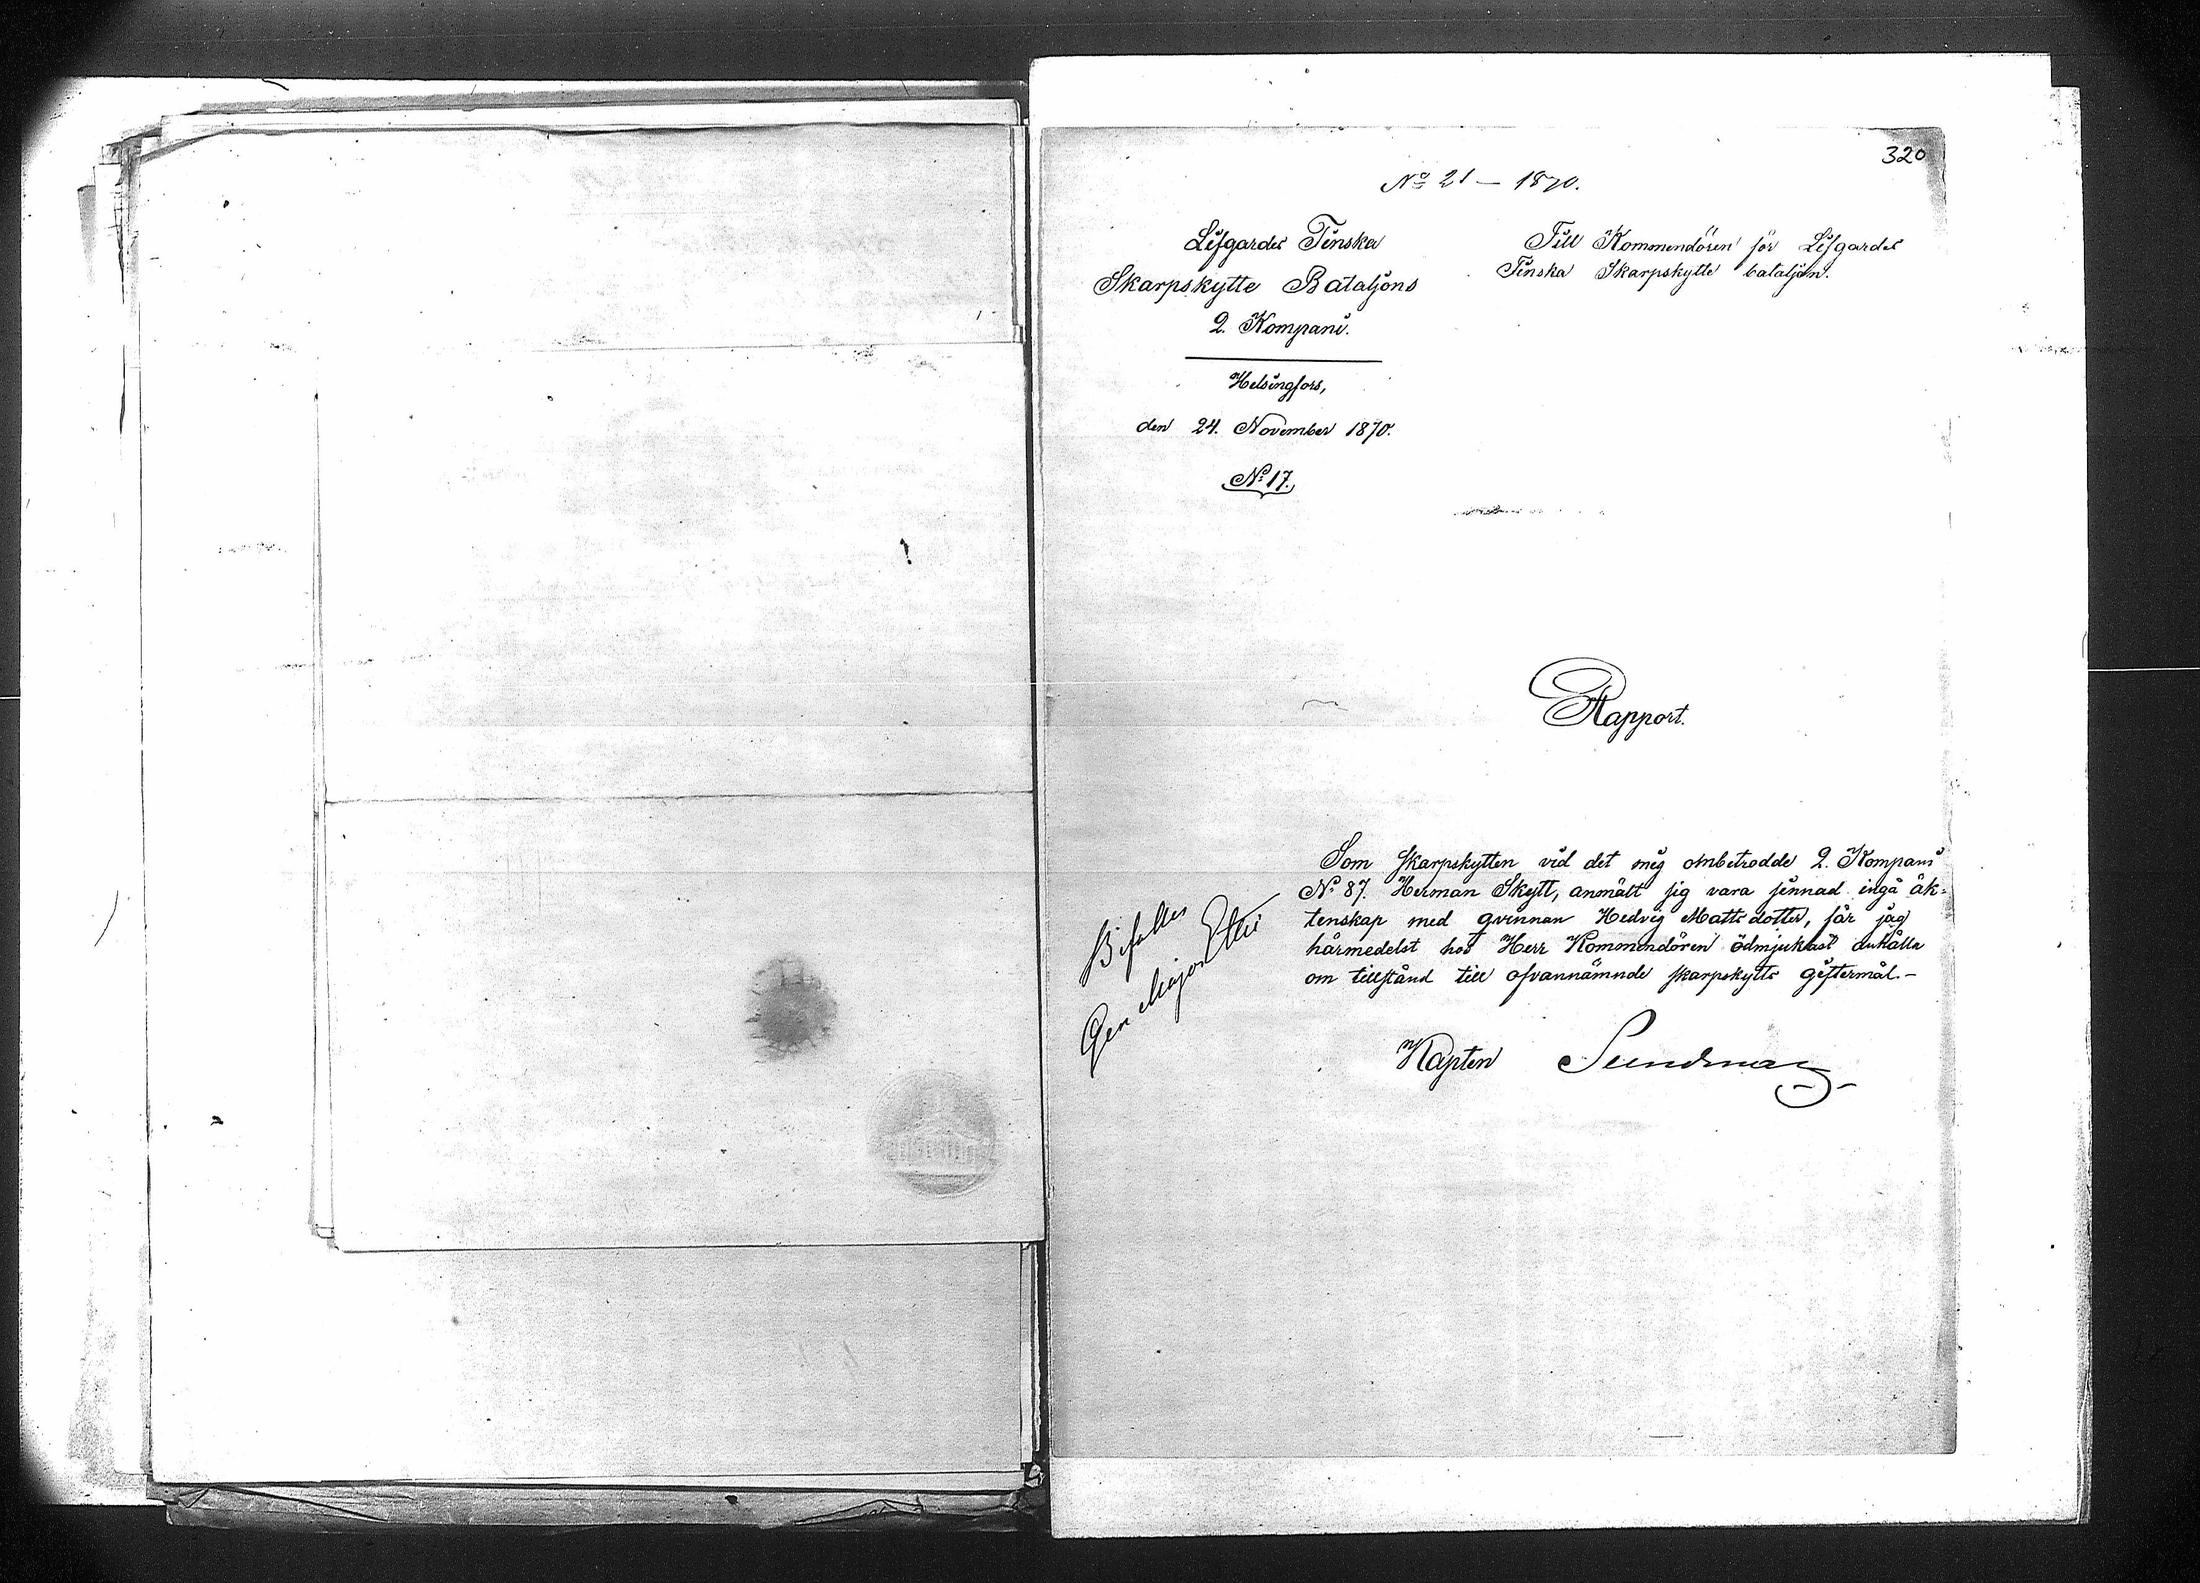 320
No 21 — 1870.
Lifgardes Finska
Skarpskytte Bataljons
2. Kompani.
Helsingfors,
den 24. November 1870.
No 17.
Till Kommendören för Lifgardes
Finska Skarpskytte bataljon.
Rapport.
Som skarpskytten vid det mig anbetrodde 2. Kompani
No 87. Herman Skytt, anmält sig vara sinnad ingå äk-
tenskap med qvinnan Hedvig Mattsdotter, får jag
härmedelst hos Herr Kommendören ödmjukast anhålla
om tillstånd till ofvannämnde skarpskytts giftermål.-
Kapten Sundman
Bifalles
Gen Major